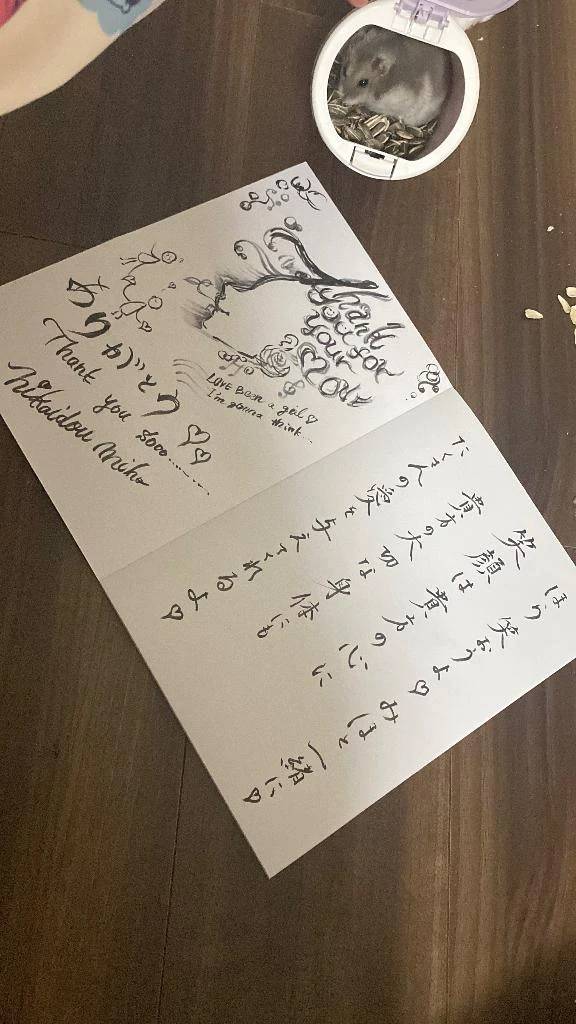 Thank
you for
your
LOVE Been a girl♡
I'm gonna think...
ありがとう♡♡
Thank you sooo........
nikaidou miho
ほら笑おうよ♡みほと一緒に♡
笑顔は貴方の心に
貴方の大切な身体にも
たくさんの愛を与えてくれるよ♡